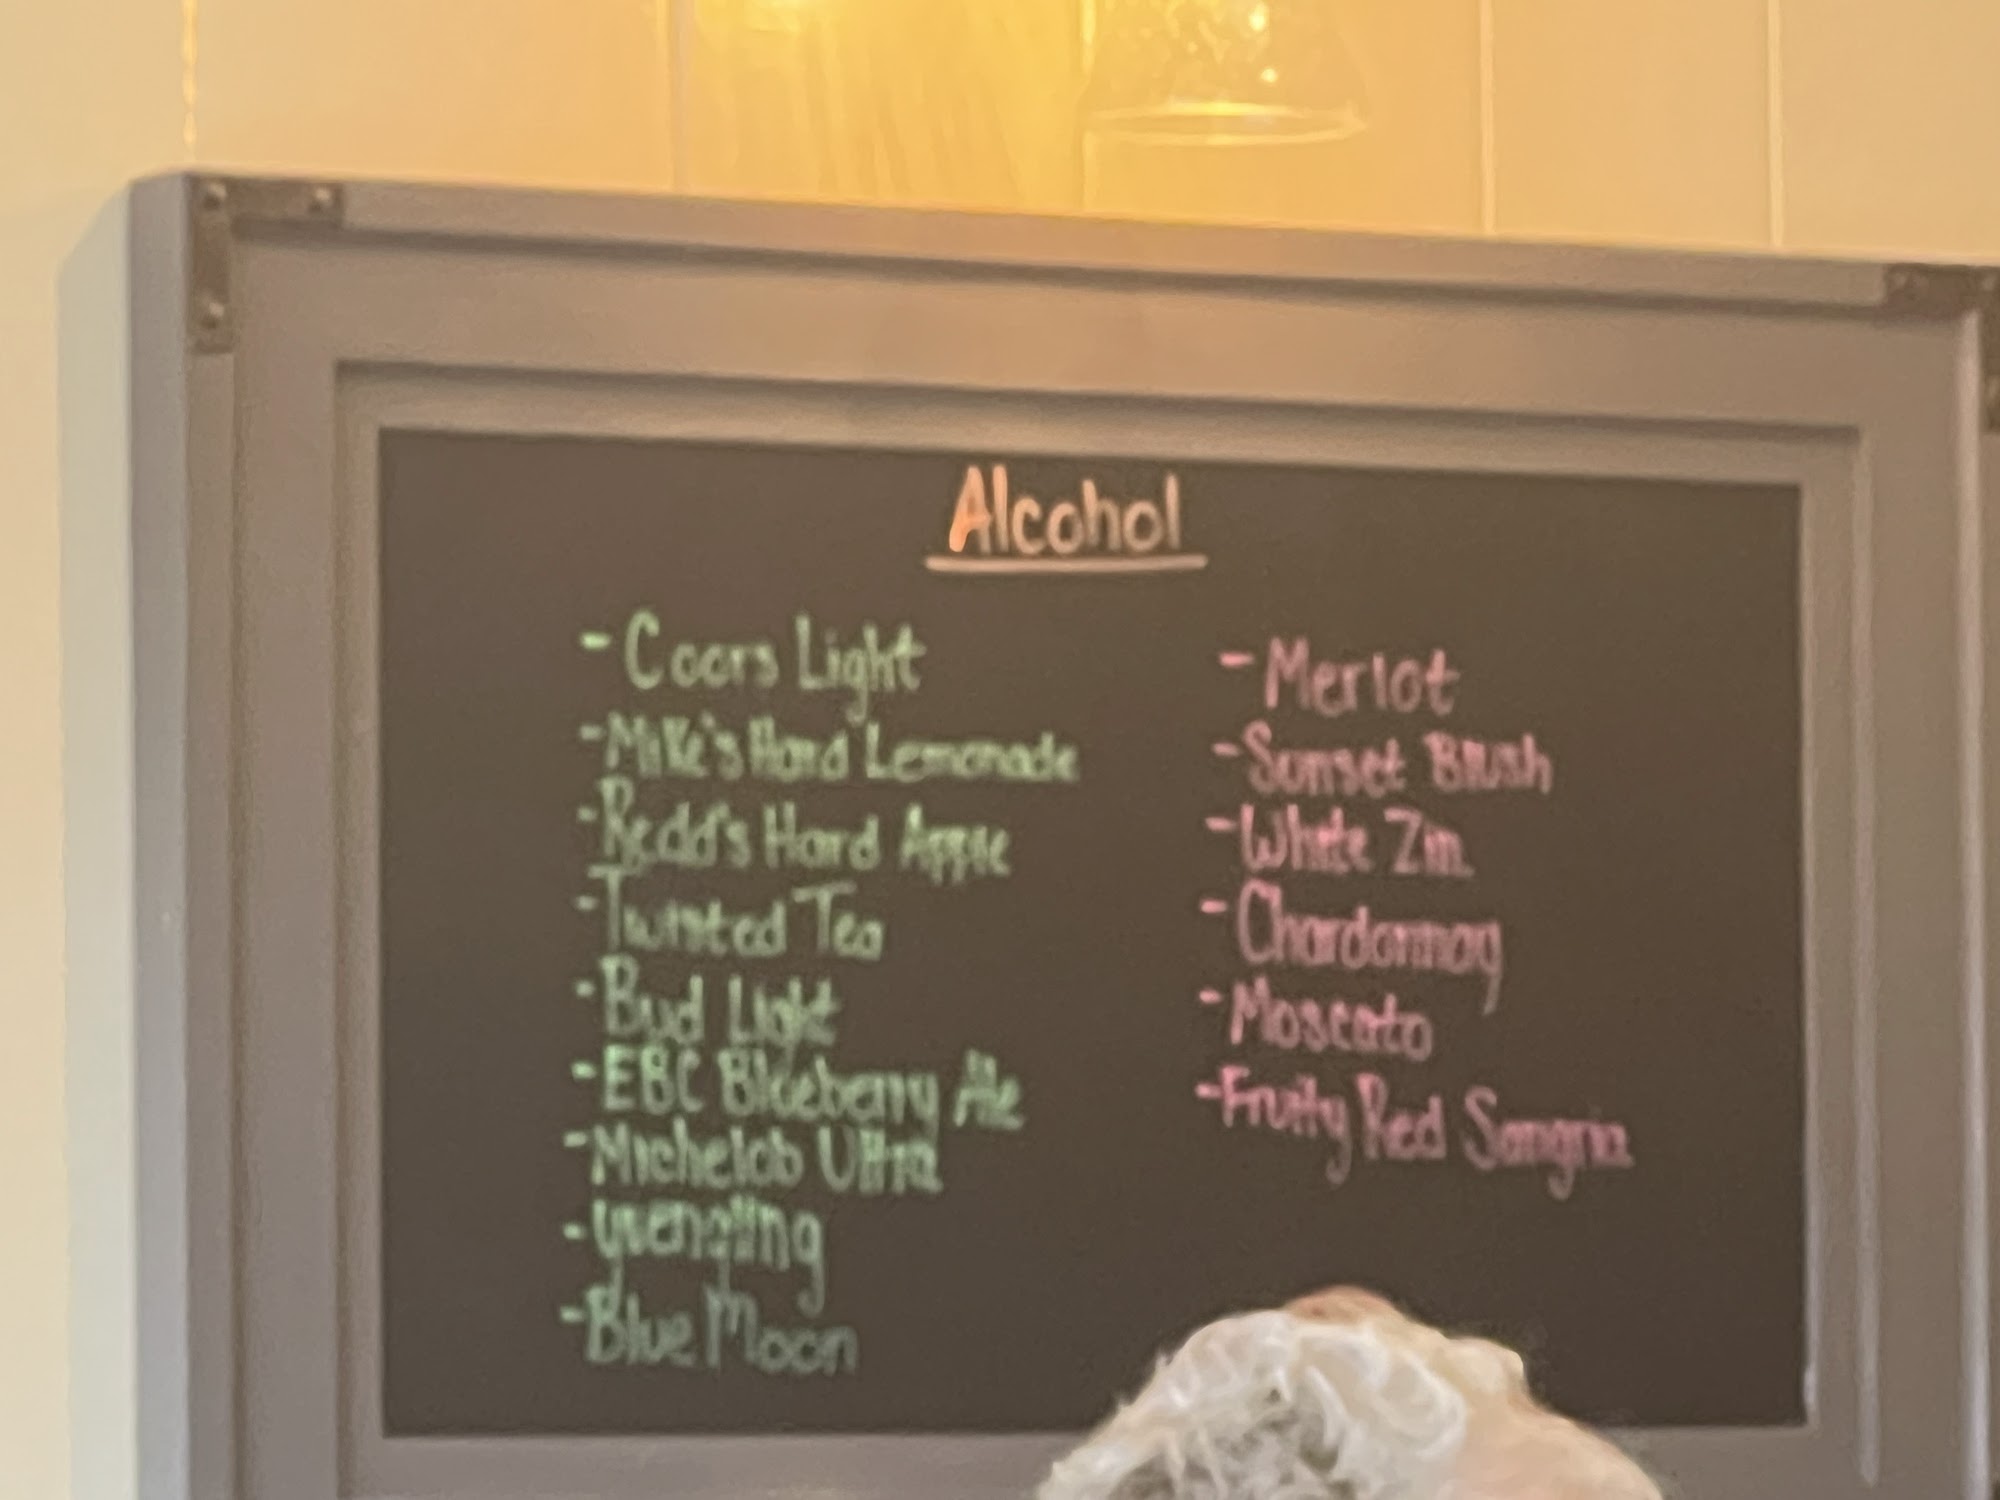 Alcohol
- Coors Light
- Mike's Hard Lemonade
- Redd's Hard Apple
- Twisted Tea
- Bud Light
- EBC Blueberry Ale
- Michelob Ultra
- Yuengling
- Blue Moon
- Merlot
- Sunset Blush
- White Zin
- Chardonnay
- Moscato
- Fruity Red Sangria